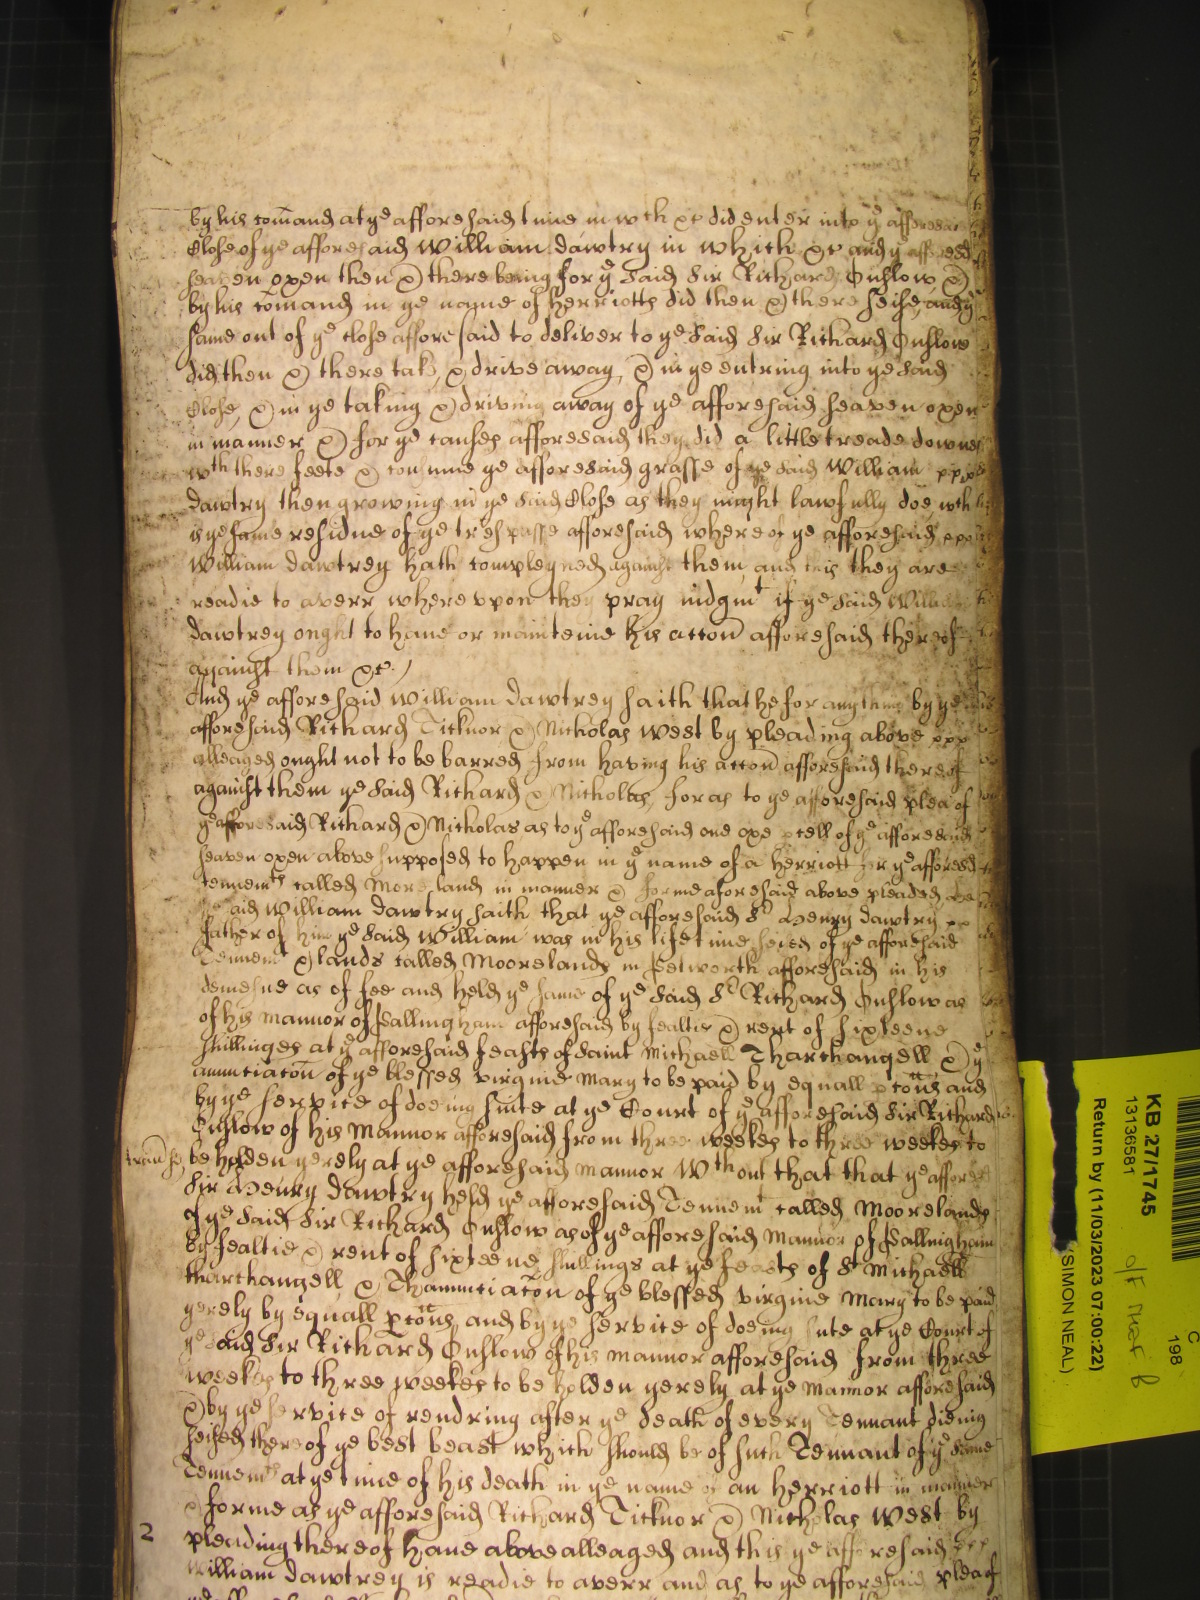 by his com̄and at ye afforesaid time in wch &c did enter into ye afforesaid
Close of ye afforesaid William dawtry in which &c and ye afforesd
seaven oxen then & there being for ye said Sir Richard Onslow &
by his com̄and in ye name of Herriotts did then & there seise, and ye
same out of ye close afforesaid to deliver to ye said Sir Richard Onslow
did then & there take, & drive away, & in ye entring into ye said
Close, & in ye taking & driving away of ye afforesaid seaven oxen
in manner & for ye causes afforesaid they did a little treade downe
wth there feete & consume ye afforesaid grasse of ye said William
dawtry then growing in ye said Close as they might lawfully doe wch
is ye same residue of ye trespasse afforesaid whereof ye afforesaid
William dawtrey hath compleyned against them and this they are
readie to averr wherevpon they pray iudgmt if ye said William
dawtrey ought to haue or mainteine his accon̄ afforesaid thereof
against them &c /
And ye afforesaid William dawtrey saith that he for anything by ye
afforesaid Richard Ticknor & Nicholas West by pleading above
alleaged ought not to be barred from having his accon̄ afforesaid thereof
against them ye said Richard & Nicholas, for as to ye afforesaid plea of
ye afforesaid Richard & Nicholas as to ye afforesaid one oxe pcell of ye afforesaid
seaven oxen above supposed to happen in ye name of a Herriott for ye afforesd
tennemts called Moreland in manner & forme aforesaid above pleaded
said William dawtry saith that ye afforesaid Sr Henry dawtry
father of him ye said William was in his life time seised of ye afforesaid
Tennemt & lands called Moorelands in Petworth afforesaid in his
demesne as of fee and held ye same of ye said Sr Richard Onslow as
of his mannor of Pallingham afforesaid by fealtie & rent of sixteene
shillinges at ye afforesaid feasts of Saint Michaell Tharchangell & ye
annunciacon̄ of ye blessed virgine Mary to be paid by equall porcōns and
by ye service of doeing suite at ye Court of ye afforesaid Sir Richard
Onslow of his Mannor afforesaid from three weekes to three weekes to
be holden yerely at ye afforesaid mannor Wthout that that ye afforesd
Sir Henry dawtry held ye afforesaid Tennemt called Moorelands
of ye said Sir Richard Onslow as of ye afforesaid Mannor of Pallingham
by fealtie & rent of sixteene shillings at ye feasts of St Michaell
tharchangell & Thannunciacōn of ye blessed virgine Mary to be paid
yerely by equall porcōns and by ye service of doeing suite at ye Court of
ye said Sir Richard Onslow of his mannor afforesaid from three
weekes to three weekes to be holden yerely at ye Mannor afforesaid
& by ye service of rendring after ye death of every Tennant dieing
seised thereof ye best beast which should be of such Tennant of ye same
Tennemts at ye time of his death in ye name of an herriott in manner
& forme as ye afforesaid Richard Ticknor & Nicholas West by
2
pleading thereof haue above alleaged and this ye afforesaid
William dawtrey is readie to averr and as to ye afforesaid plea of
KB 27/1745
13136581
Return by (11/03/2023 07:00:22)
(SIMON NEAL)
C
198